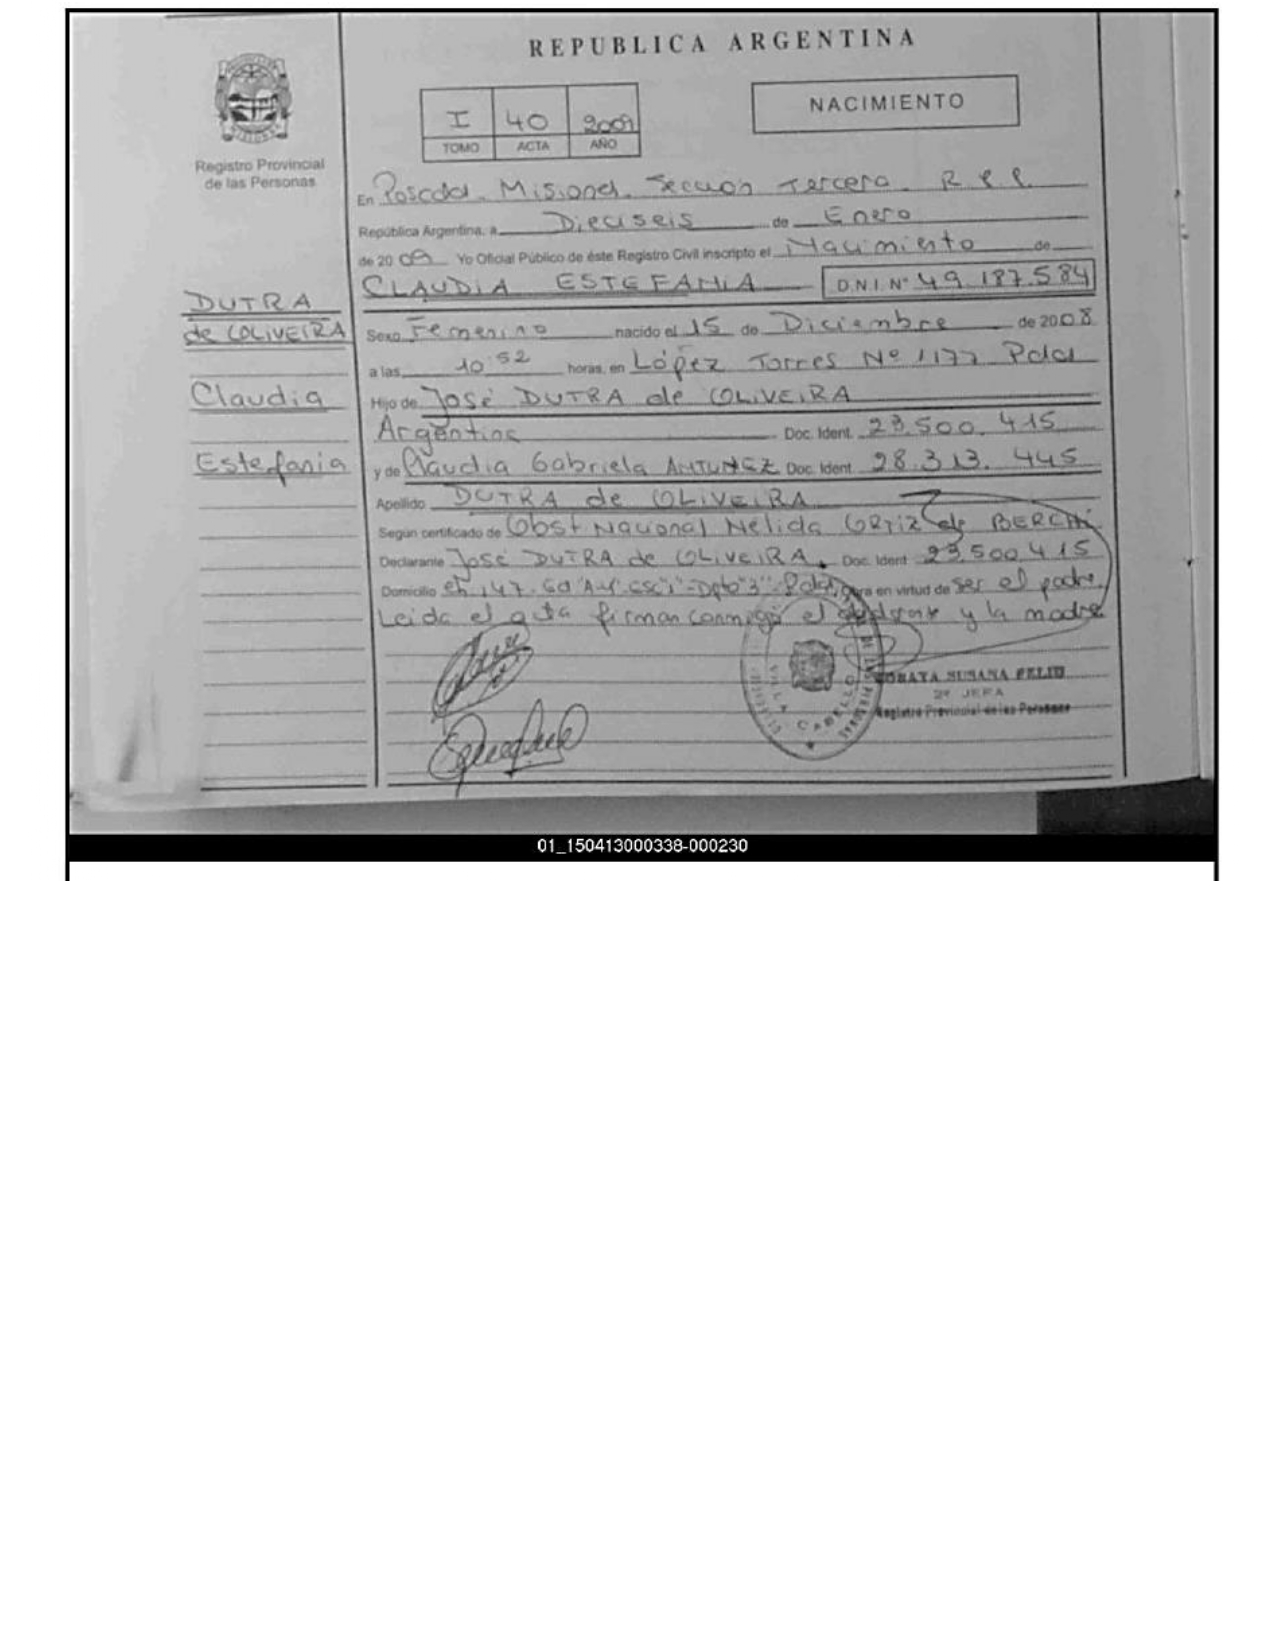 REPUBLICA ARGENTINA
Registro Provincial
de las Personas
I 40 2009
TOMO ACTA AÑO
NACIMIENTO
En Posadas - Misiones. Sección Tercera - R.P.P.
República Argentina, a Dieciseis de Enero
de 2009 Yo Oficial Público de éste Registro Civil inscripto el Nacimiento de
CLAUDIA ESTEFANIA D.N.I. Nº 49.187.584
DUTRA
de OLIVEIRA
Claudia
Estefania
Sexo Femenino nacido el 15 de Diciembre de 2008
a las 10:52 horas, en López Torres Nº 1177 Pdas
Hijo de José DUTRA de OLIVEIRA
Argentina Doc. Ident. 23.500.415
y de Claudia Gabriela ANTUNEZ Doc. Ident. 28.313.445
Apellido DUTRA de OLIVEIRA
Según certificado de Obst Nacional Nélida ORTIZ de BERCHI
Declarante José DUTRA de OLIVEIRA. Doc. Ident 23.500.415
Domicilio Ch 147. Dpto "3" Pdas, obra en virtud de ser el padre.
Leida el acta firman conmigo el declarante y la madre
VILLA CABELLO
SORAYA SUSANA FELIU
2ª JEFA
Registro Provincial de las Personas
01_150413000338-000230